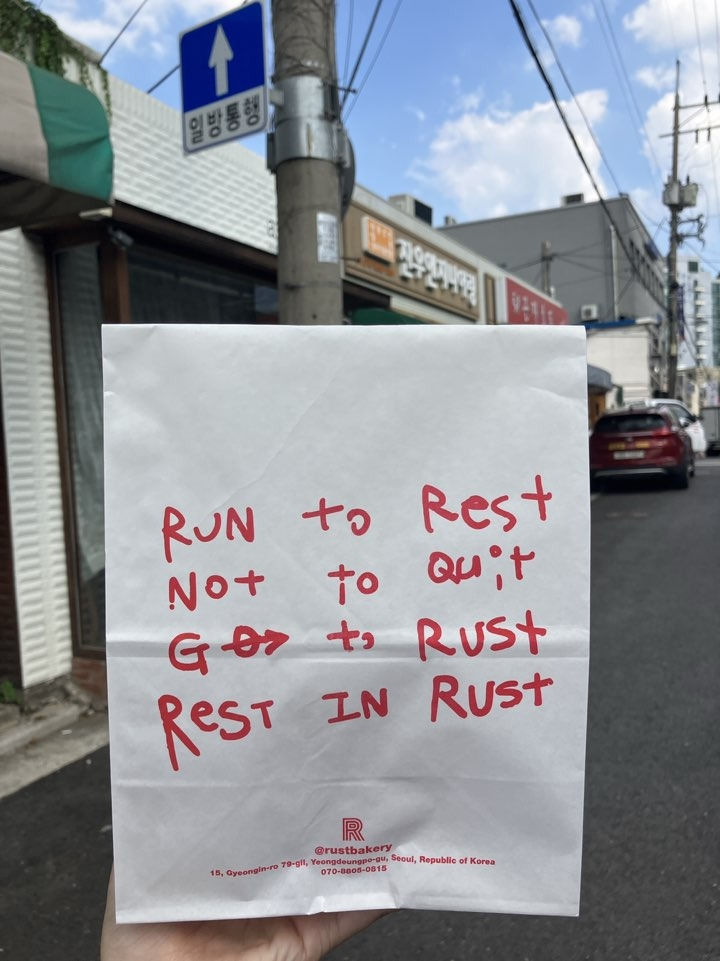 일방통행
진우네지마켓
RUN to Rest
Not to Quit
GO to RUST
ReST IN RUST
R
@rustbakery
15, Gyeongin-ro 79-gil, Yeongdeungpo-gu, Seoul, Republic of Korea
070-8805-0815